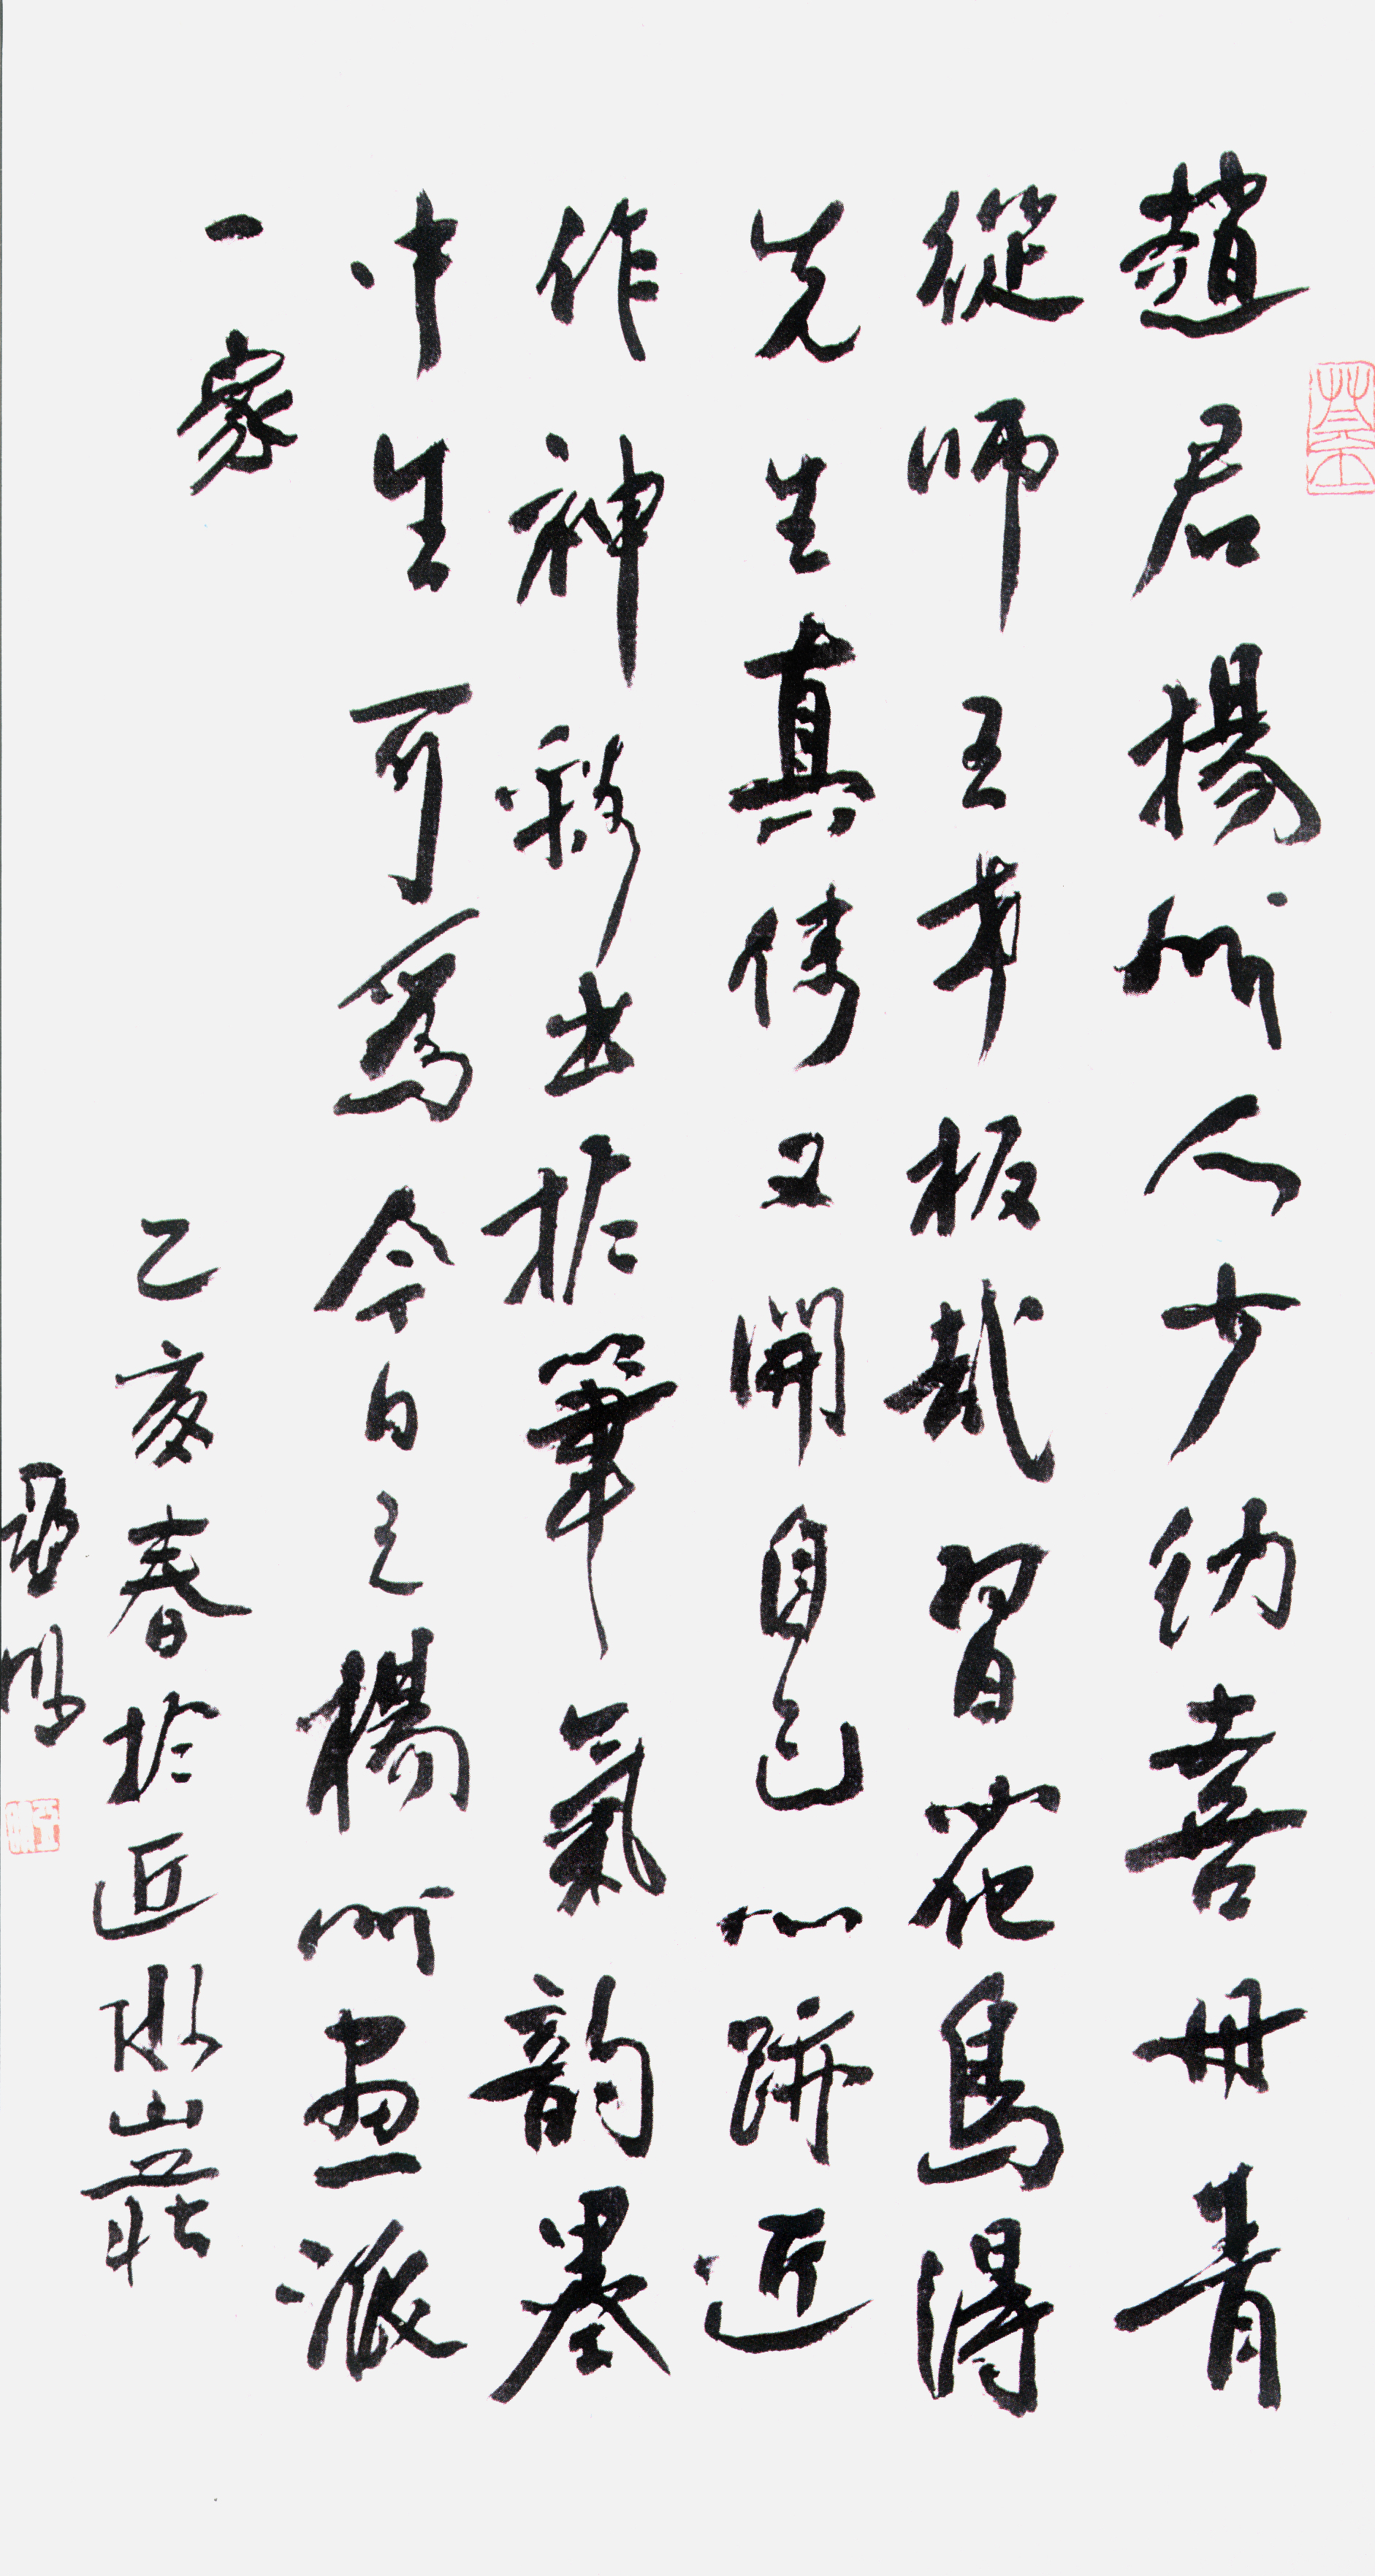 趙君揚州人少幼喜丹青
從師王板哉習花鳥得
先生真傳又開自己心跡近
作神彩出於筆氣韵墨
中生可為今日之楊州畫派
一家
乙亥春於近水山莊
亞明
亞明